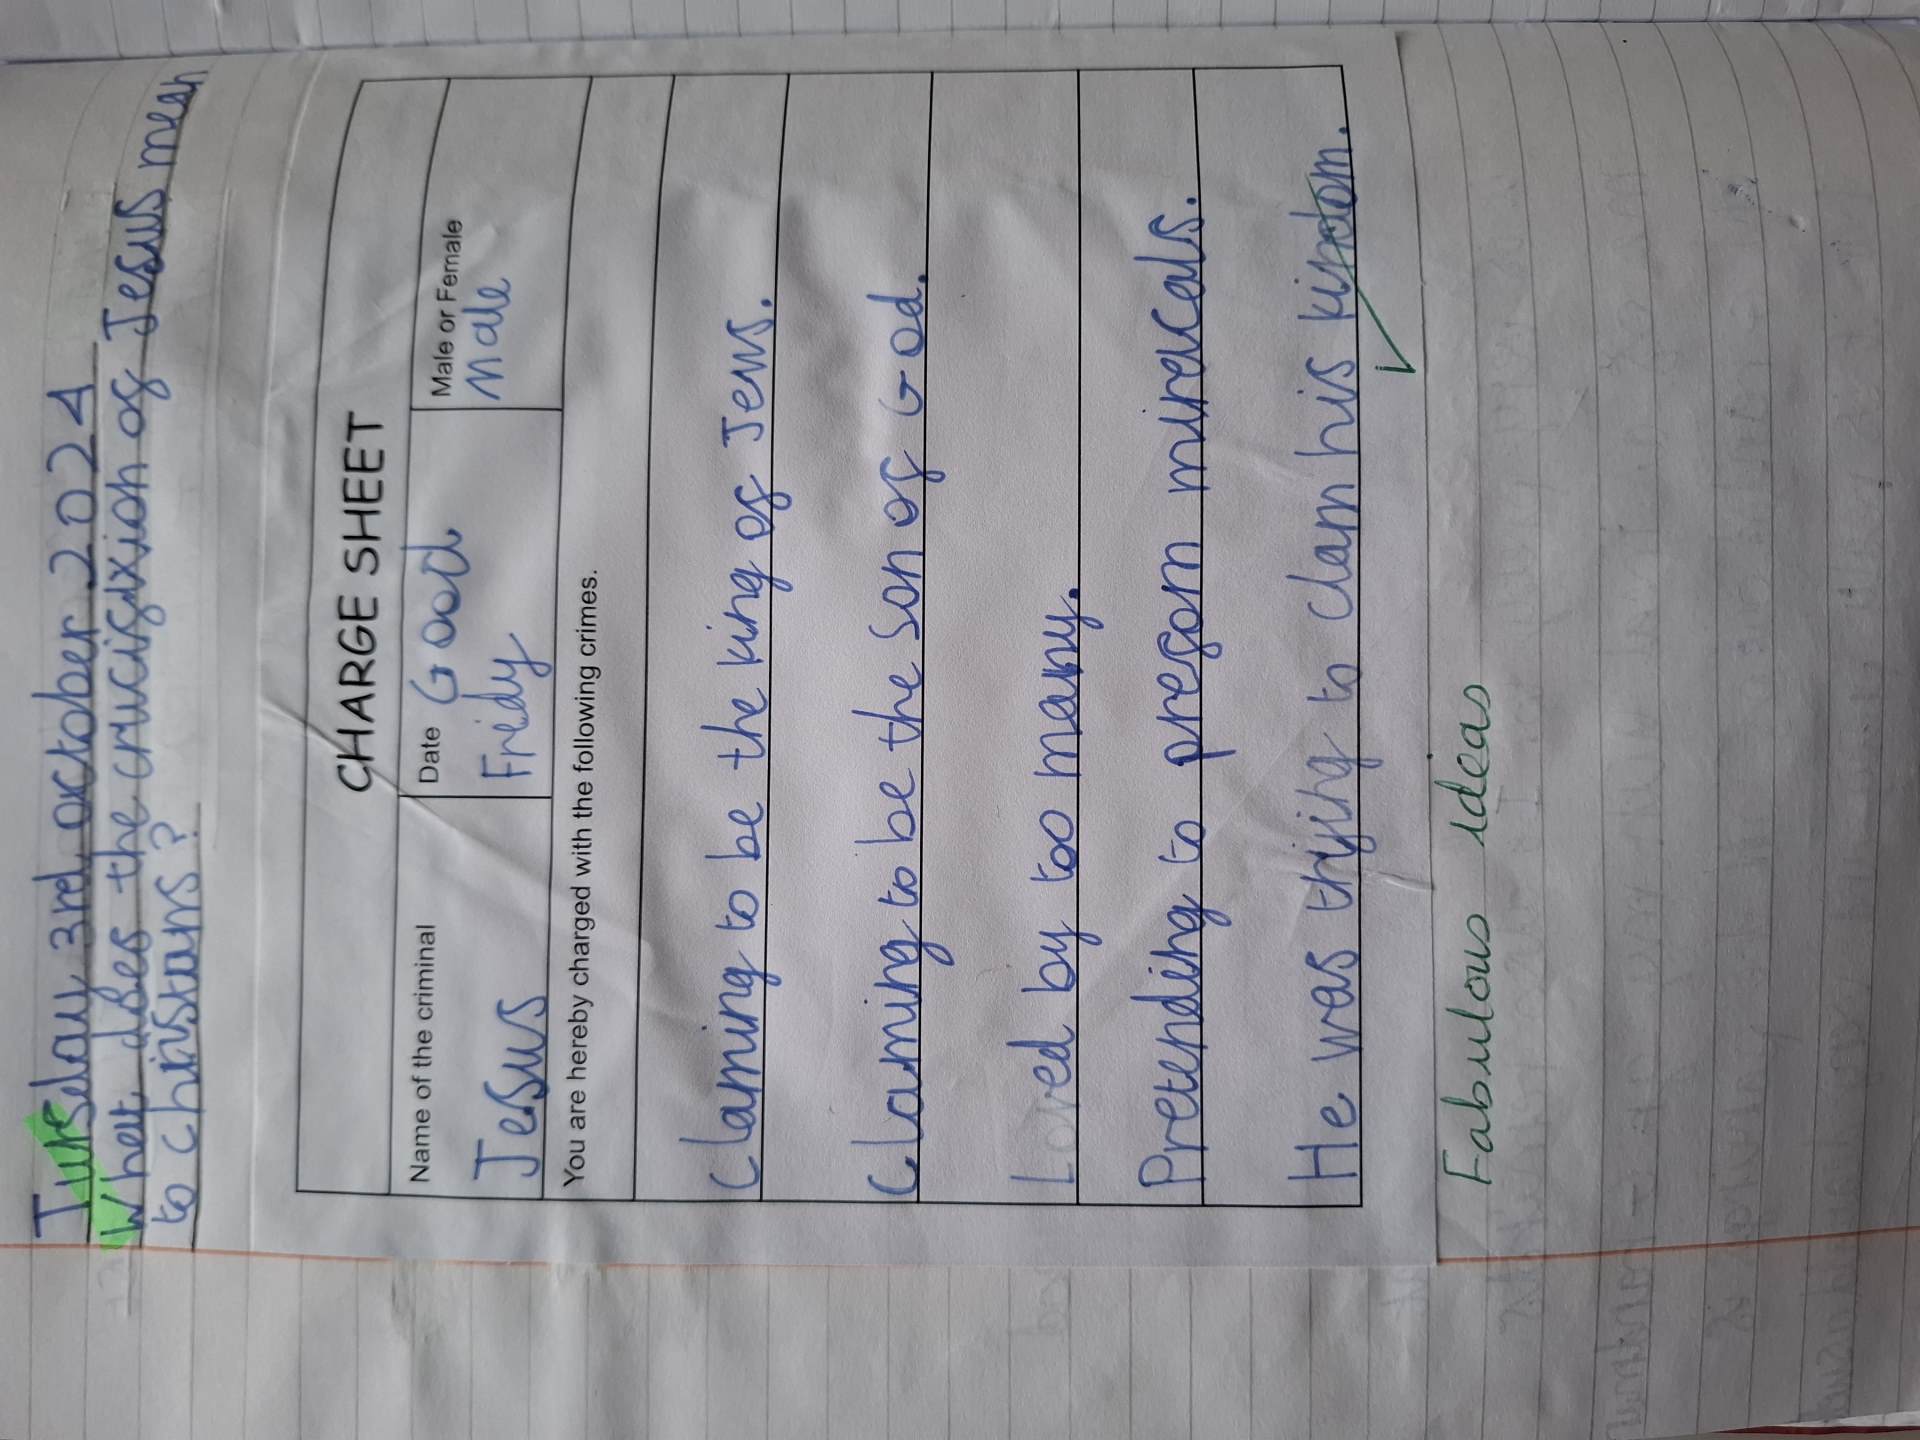 Tureselay 3rd October 2024
What does the crucisixion of Jesus mean
to christans?
CHARGE SHEET
Name of the criminal
Jesus
Date Good
Freidy
Male or Female
male
You are hereby charged with the following crimes.
Claming to be the king of Jews.
Claming to be the son of God.
Loved by too many.
Pretending to presom miracals.
He was trying to clam his kindom.
Fabulous ideas